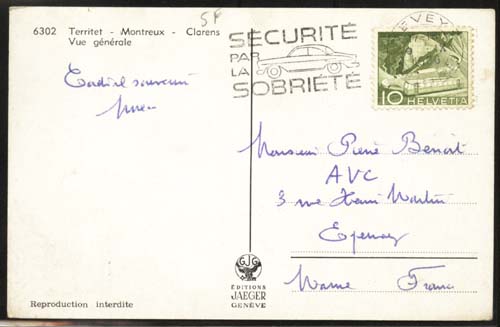 6302 Territet - Montreux - Clarens
Vue générale
SF
Cordial souvenir
SÉCURITÉ
PAR
LA
SOBRIÉTÉ
VEVEY
10 HELVETIA
Monsieur Pierre Benoit
AVC
3 rue Henri Martin
Epernay
Marne France
GJG
ÉDITIONS
JAEGER
GENÈVE
Reproduction interdite